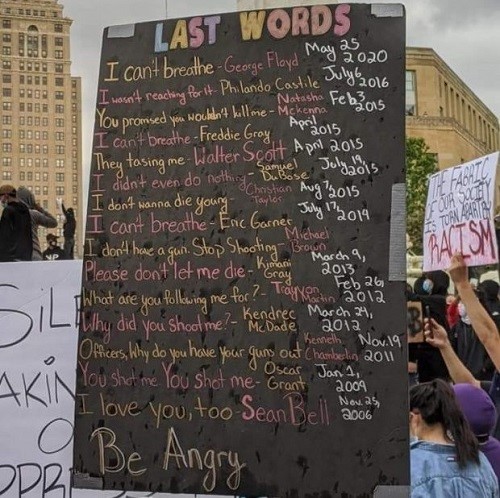 LAST WORDS
I can't breathe - George Floyd May 25 2020
I wasn't reaching for it - Philando Castile July 6 2016
You promised you wouldn't kill me - Natasha McKenna Feb 3 2015
I can't breathe - Freddie Gray April 2015
They tasing me - Walter Scott April 2015
I didn't even do nothing - Samuel DuBose July 19, 2015
I don't wanna die young - Christian Taylor Aug 7, 2015
I can't breathe - Eric Garner July 17, 2014
I don't have a gun. Stop Shooting - Michael Brown
Please don't let me die - Kimani Gray March 9, 2013
What are you following me for? - Trayvon Martin Feb 26, 2012
Why did you shoot me? - Kendrec McDade March 24, 2012
Officers, Why do you have your guns out Kenneth Chamberlin Nov. 19 2011
You shot me You Shot me - Oscar Grant Jan. 1, 2009
I love you, too - Sean Bell Nov. 25, 2006
Be Angry
THE FABRIC
OF OUR SOCIETY
IS TORN APART BY
RACISM
SIL
AKIN
O
PPR